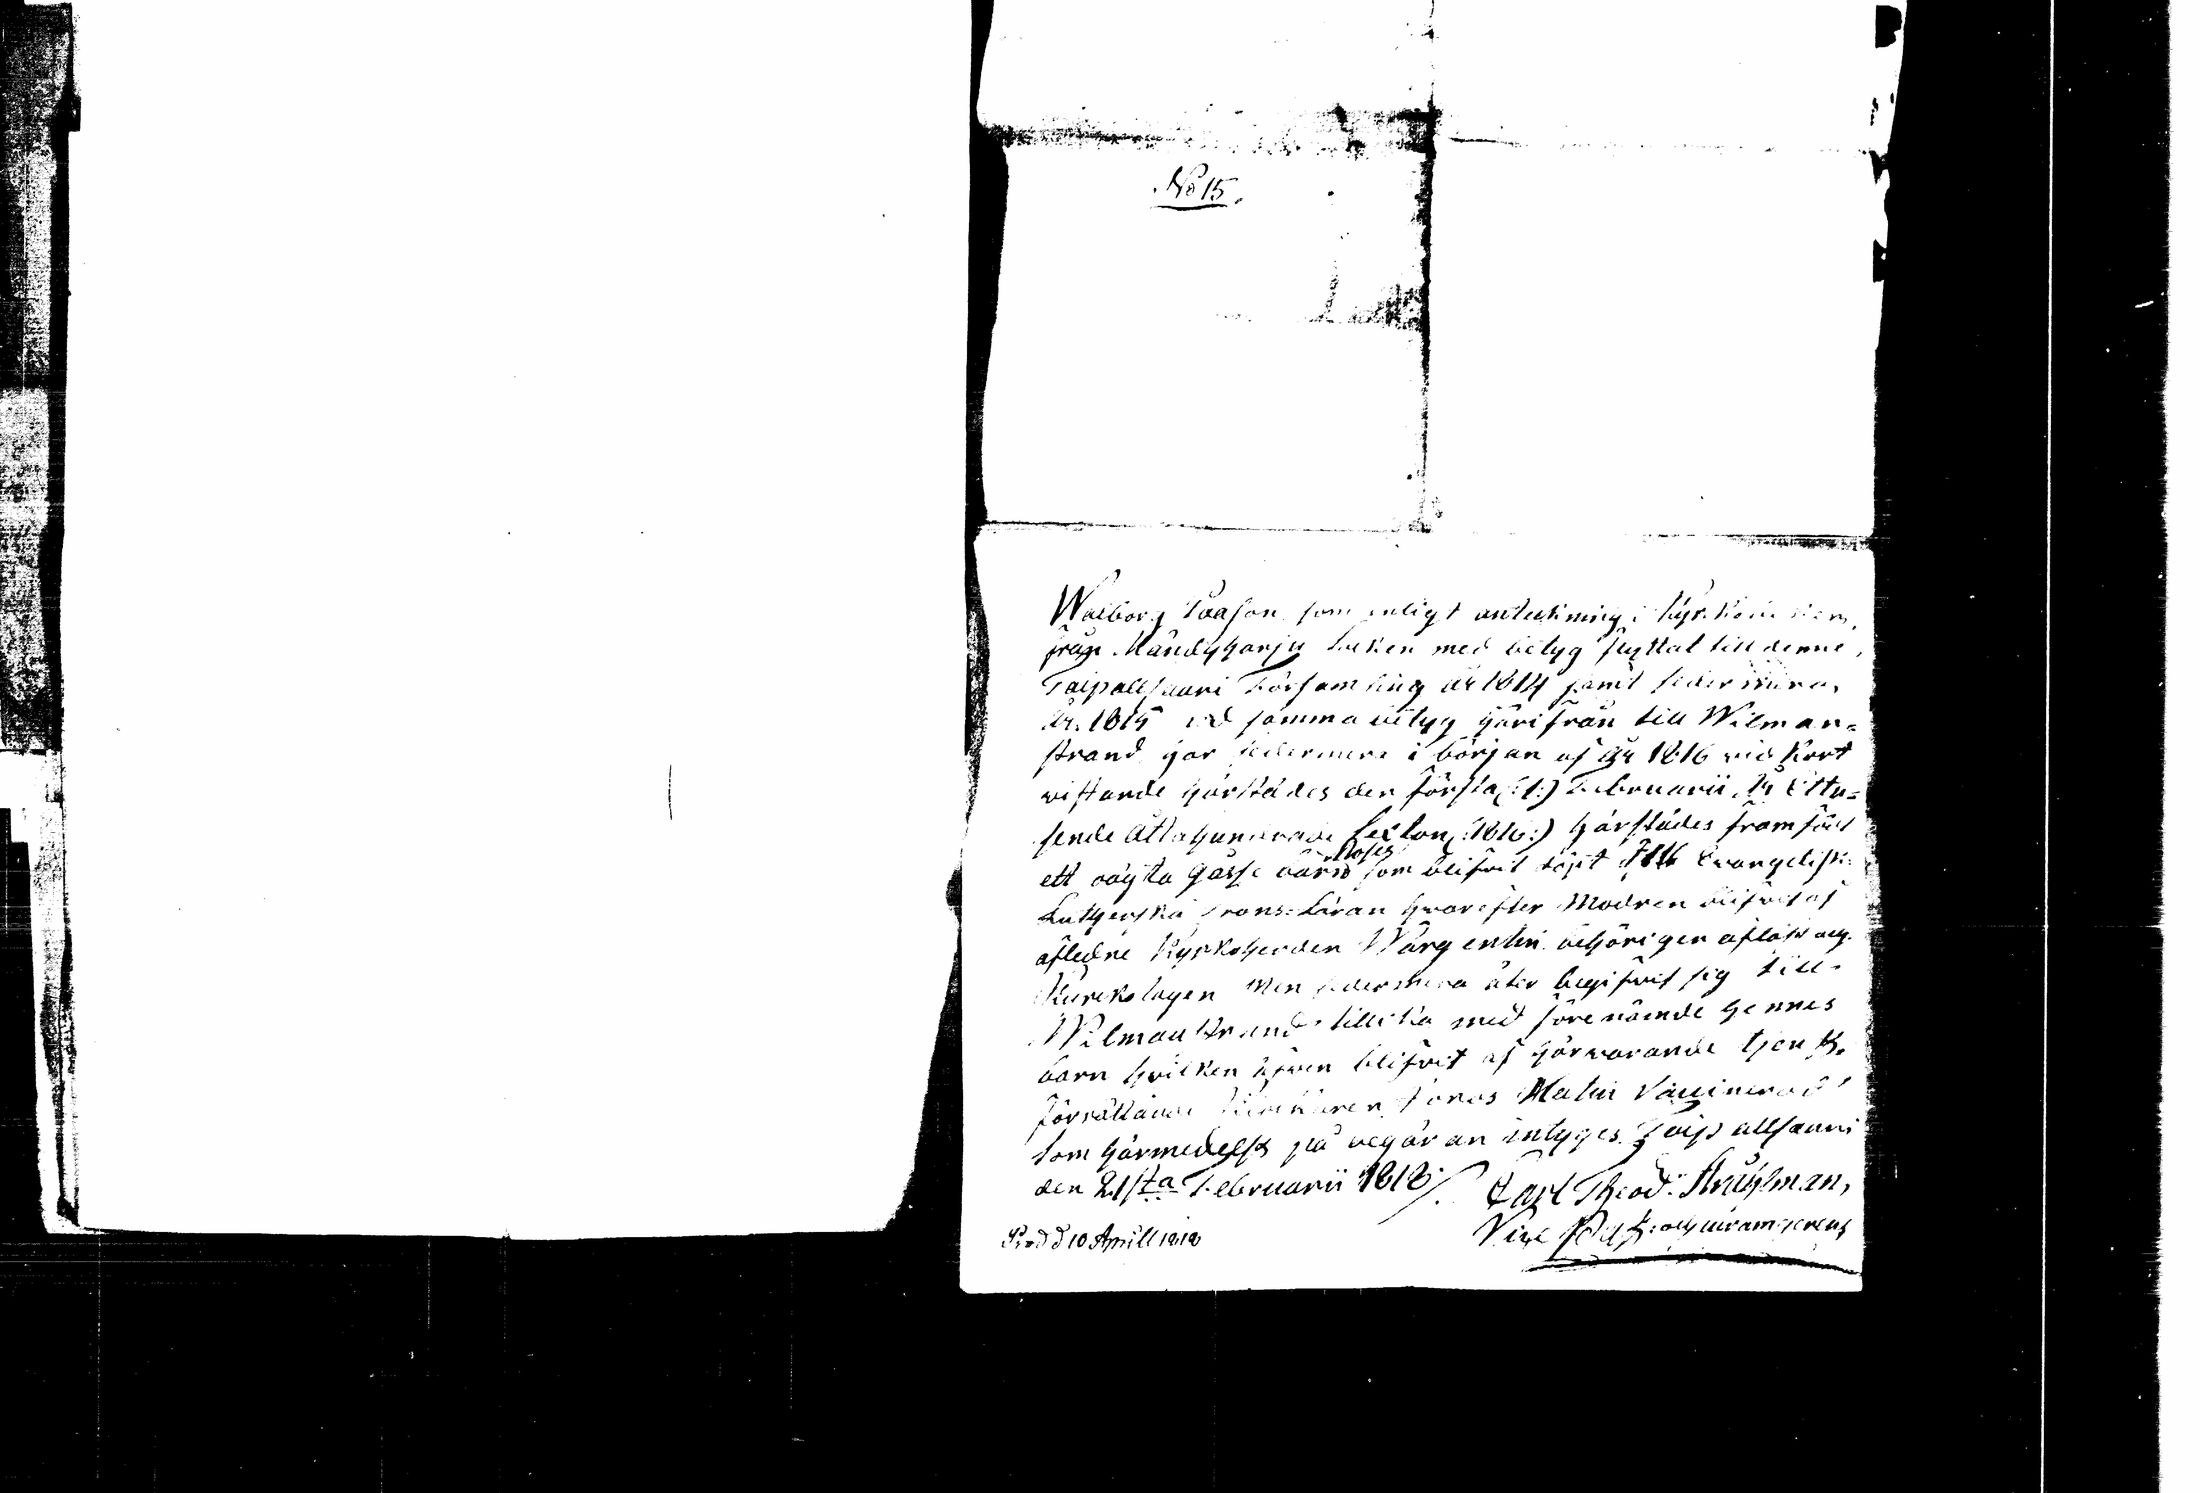 No 15.
Walborg Paason som enligt anteckning i Kyrkobok
från Mändyharju Socken med betyg flyttat till denne
Taipallsaari Församling år 1814 samt sedermera
år 1815 med samma betyg härifrån till Wilman=
strand har sedermera i början af år 1816 vid kort
vistande härstädes den första (:1:) Februarii År Ettu=
sende Åttahundrade Sexton (:1816:) härstädes framfödt
ett oägta Gåsse barn Moses som blifvit döpt till Evangelisk
Lutherska Trons-Läran hvarefter Modren blifvit af
afledne Kyrkoherden Wargentin behörigen aflöst
Kyrkotagen Men sedermera åter begifvit sig till
Wilmanstrand tillika med förenämde hennes
barn hvilken äfven blifvit af härvarande tjenst
förrättande Klockaren Jonas Malin Vaccinerad
Som härmedelst på begäran intyges. Taipallsaari
den 21sta Februarii 1818 /. Carl Theod: Struhlman,
Vice Past:
Prod d 10 Aprill 1818